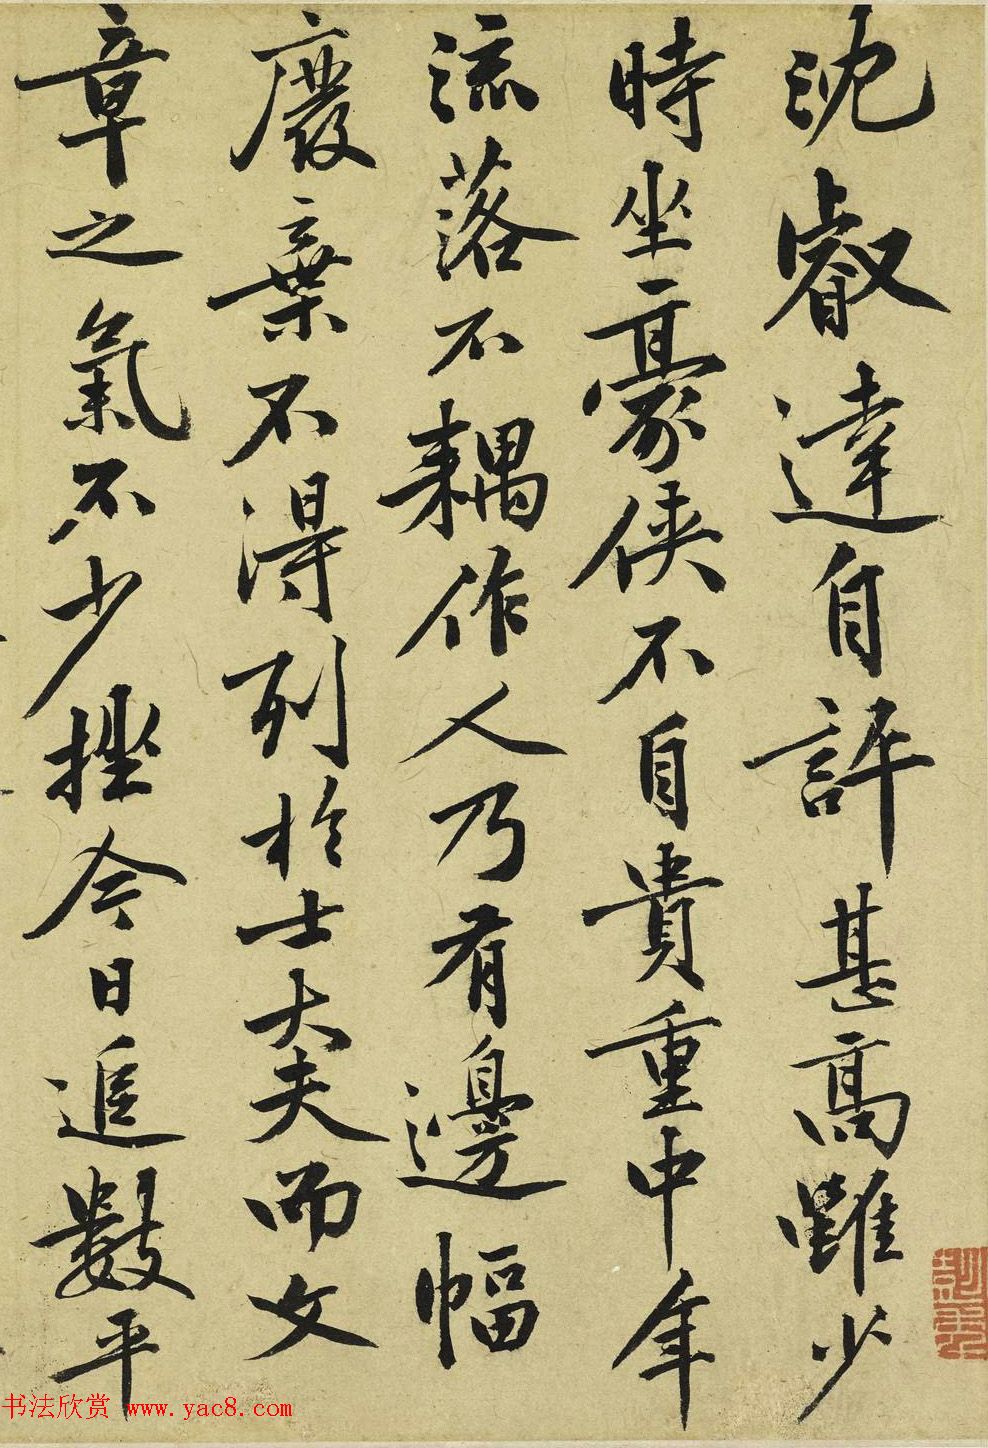 沈睿達自許甚高雖少
時坐豪俠不自貴重中年
流落不耦作人乃有邊幅
廢棄不得列於士大夫而文
章之氣不少挫今日追數平
书法欣赏 www.yac8.com